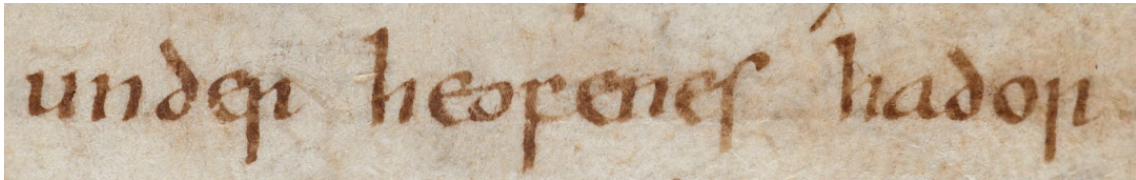 under heoꝼenes hador